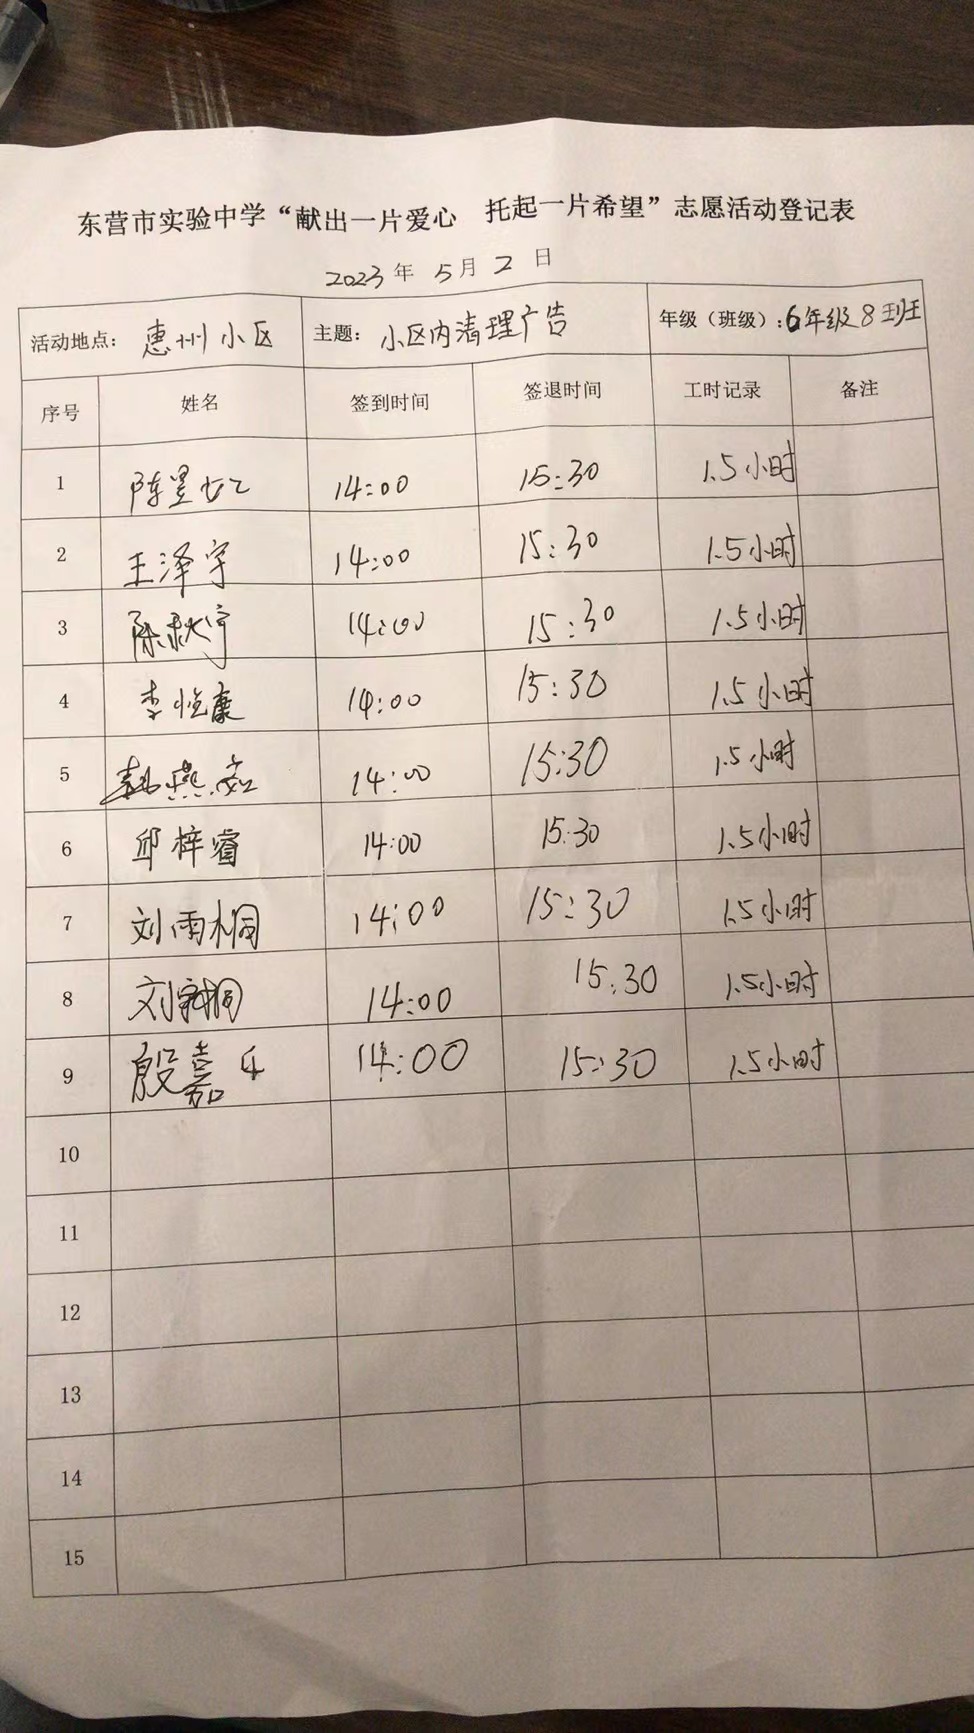 东营市实验中学“献出一片爱心 托起一片希望”志愿活动登记表
2023年 5月 2 日
活动地点：惠州小区 主题：小区内清理广告 年级（班级）：6年级8班
序号 姓名 签到时间 签退时间 工时记录 备注
1 陈昱 14:00 15:30 1.5小时
2 王泽宇 14:00 15:30 1.5小时
3 14:00 15:30 1.5小时
4 李恒康 14:00 15:30 1.5小时
5 14:00 15:30 1.5小时
6 邱梓睿 14:00 15:30 1.5小时
7 刘雨桐 14:00 15:30 1.5小时
8 刘 桐 14:00 15:30 1.5小时
9 殷嘉 14:00 15:30 1.5小时
10
11
12
13
14
15